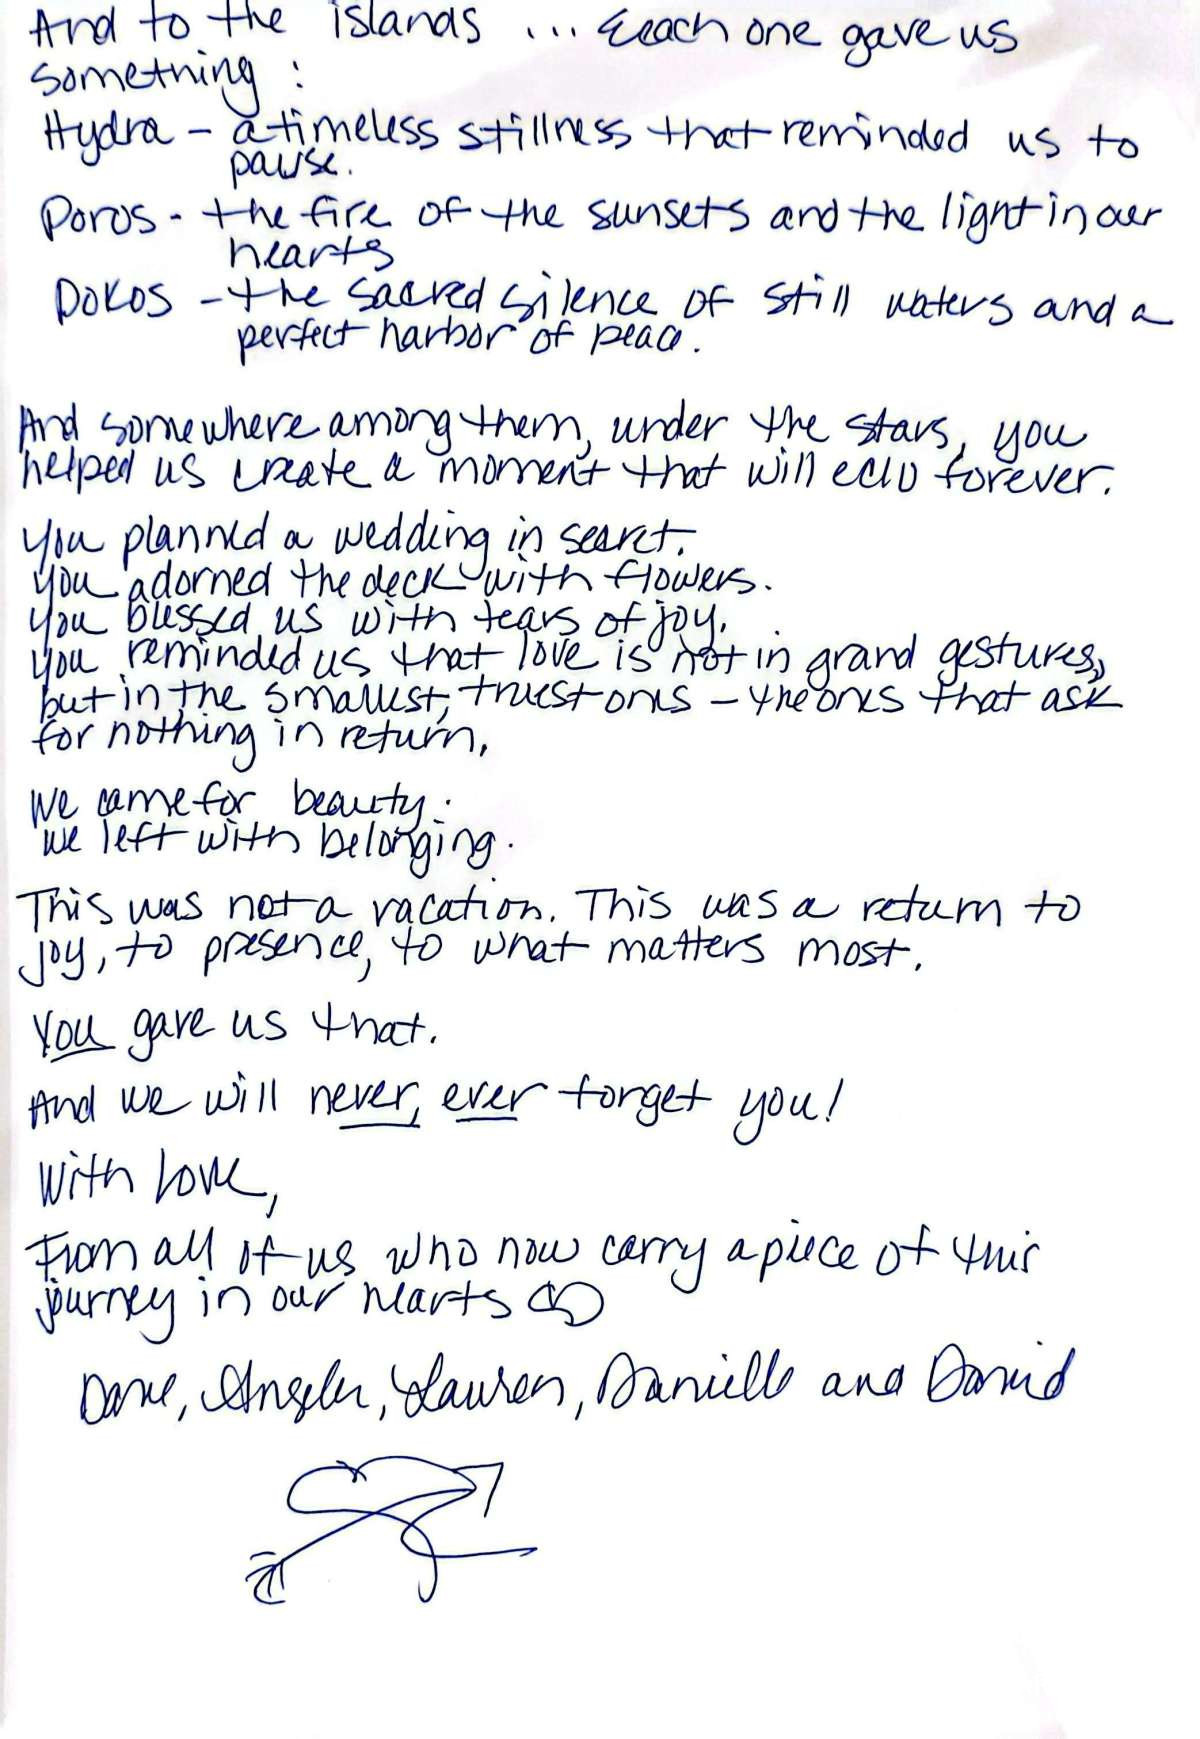 And to the islands ... Each one gave us
something:
Hydra - a timeless stillness that reminded us to
pause.
Poros - the fire of the sunsets and the light in our
hearts
Dokos - the sacred silence of still waters and a
perfect harbor of peace.
And somewhere among them, under the stars, you
helped us create a moment that will echo forever.
You planned a wedding in secret.
You adorned the deck with flowers.
You blessed us with tears of joy.
You reminded us that love is not in grand gestures,
but in the smallest, truest ones - the ones that ask
for nothing in return.
We came for beauty.
We left with belonging.
This was not a vacation. This was a return to
joy, to presence, to what matters most.
You gave us that.
And we will never, ever forget you!
With love,
From all of us who now carry a piece of this
journey in our hearts
Dave, Angela, Lauren, Danielle and David